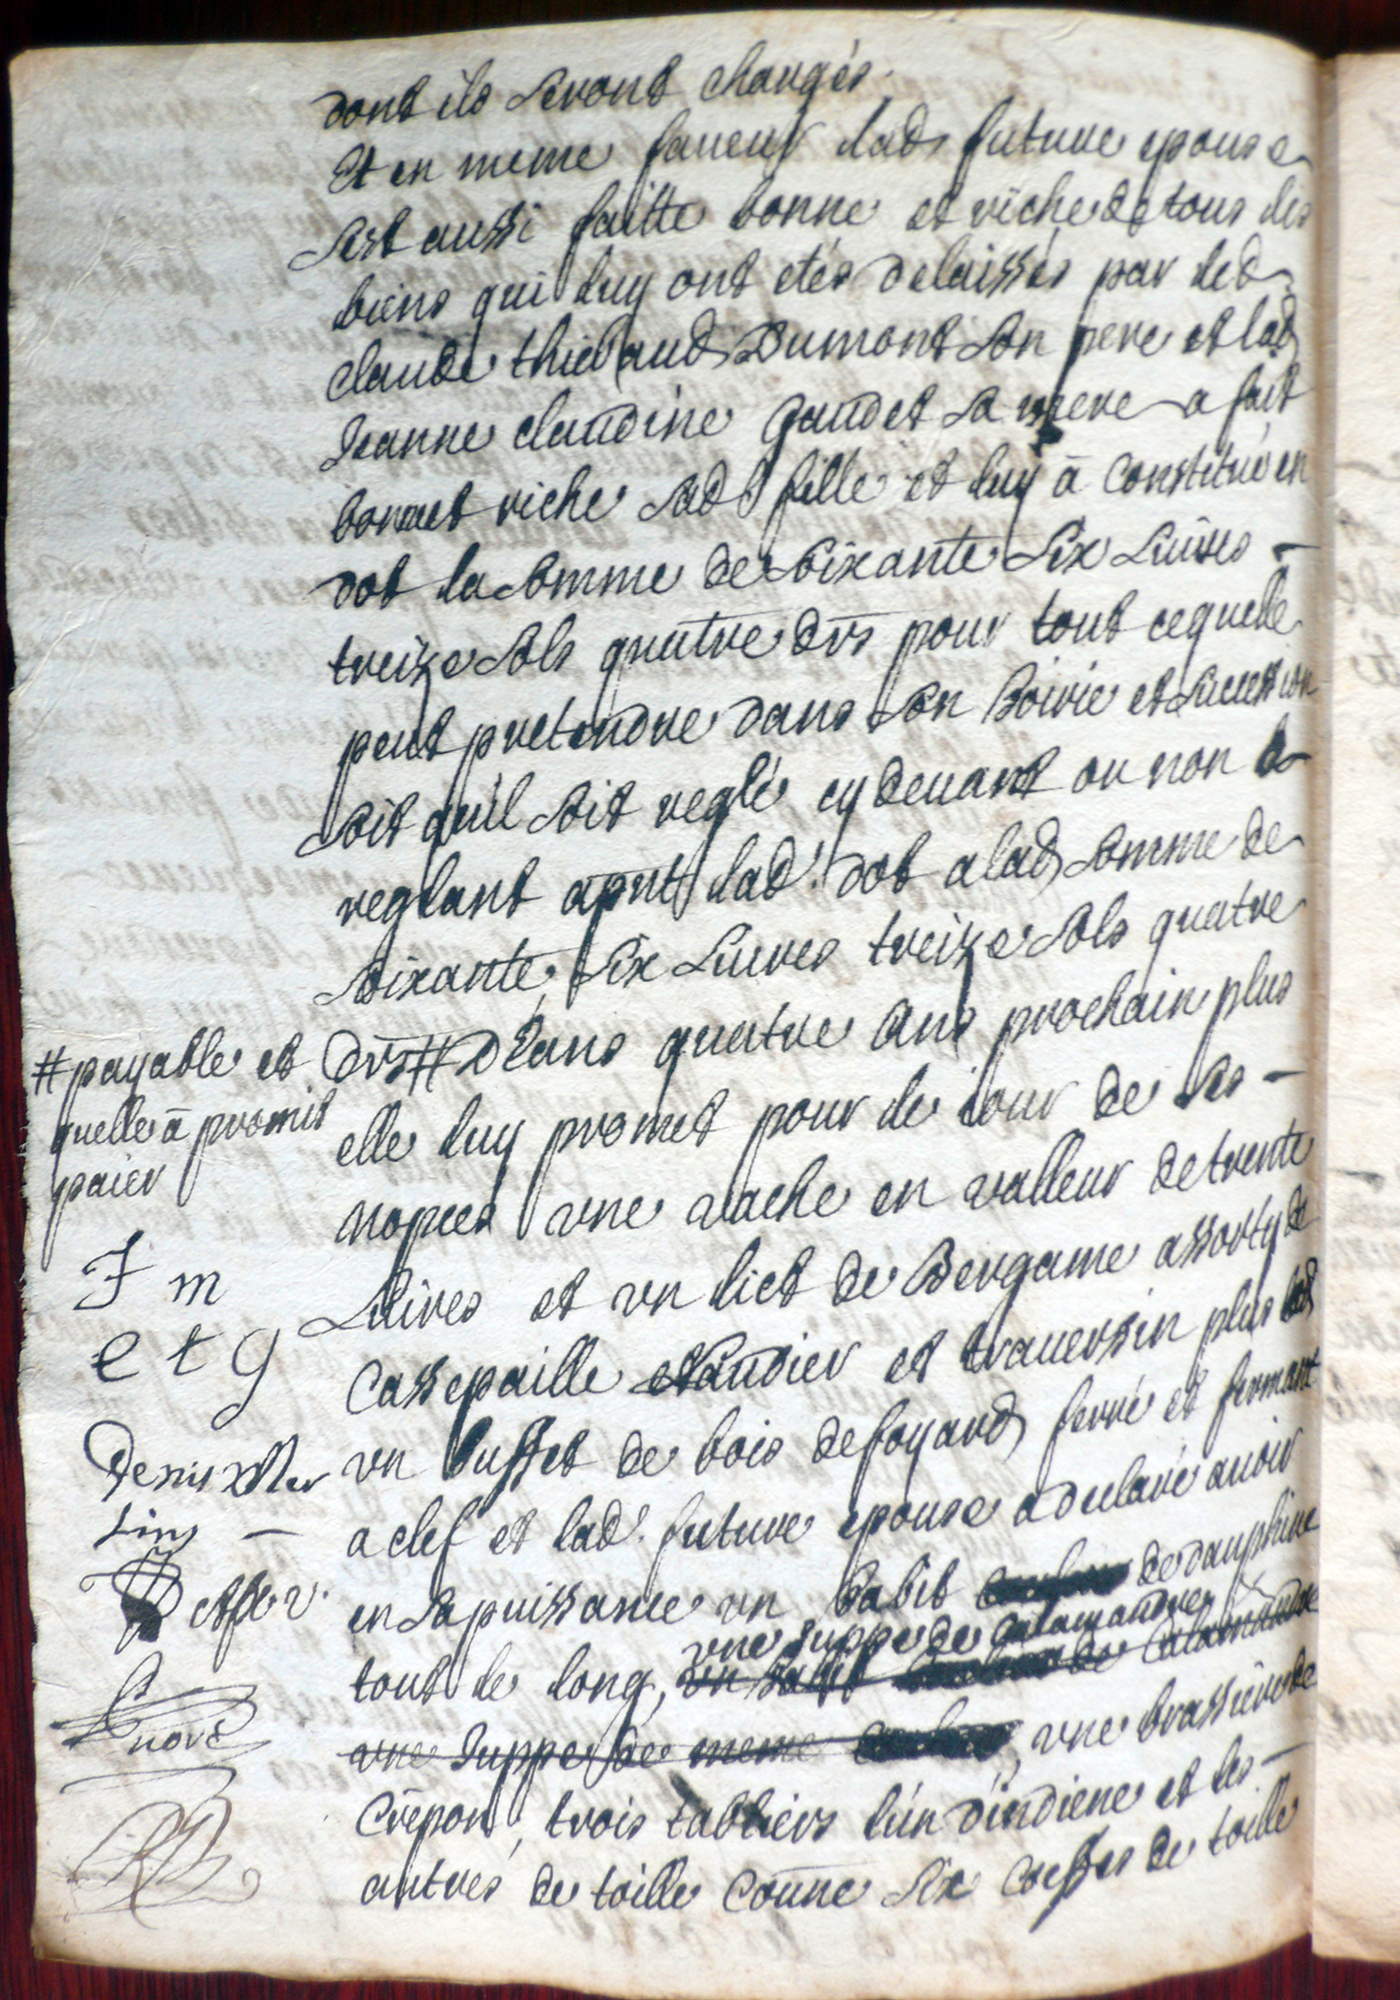 dont ils seront chargés.
Et en meme faueur lad future epouse
sest aussi faitte bonne et riche de tous les
biens qui luy ont etés delaissés par led
claude thiebaud Dumont son pere et lad
Jeanne claudine gaudet sa mere a fait
bonne et riche sad fille et luy à constitué en
dot la somme de soixante six Liures
treize sols quatre drs pour tout cequelle
peut pretendre dans son hoirie et succession
soit quil soit reglé cy deuant ou non
reglant aprnt lad. dot a lad somme de
soixante six Liures treize sols quatre
drs # Dans quatre ans prochain plus
elle luy promet pour le iour de ses
nopces une vache en valleur de trente
Liures et un lict de Bergame assorty de
Cassepaille et traversin plus
un buffet de bois de foyard ferré et fermant
a clef et lad. future epouse a declaré auoir
en sa puissance un habit de dauphine
une Juppe de Calamandre
tout de long, un habit de Calamandre
une Juppe de meme, une brassiere de
Crêpon, trois tabliers l'un d'indiene et les
autres de toille Coûne six coeffes de toille
# payable et
quelle à promit
paier
J m
e t g
Denis Mar
tin